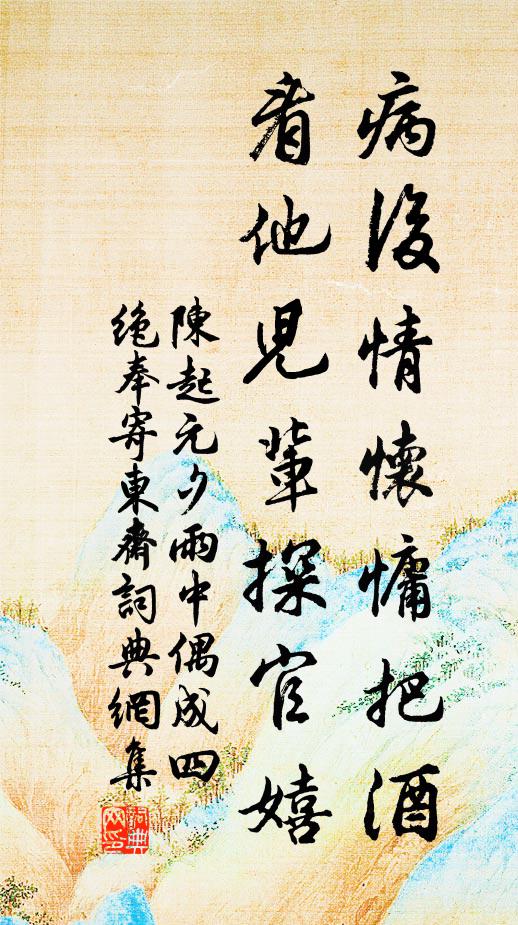 病後情懷慵把酒
看他兒輩探官嬉
陳起元夕雨中偶成四
絶奉寄東齋詞典網集
詞典網印